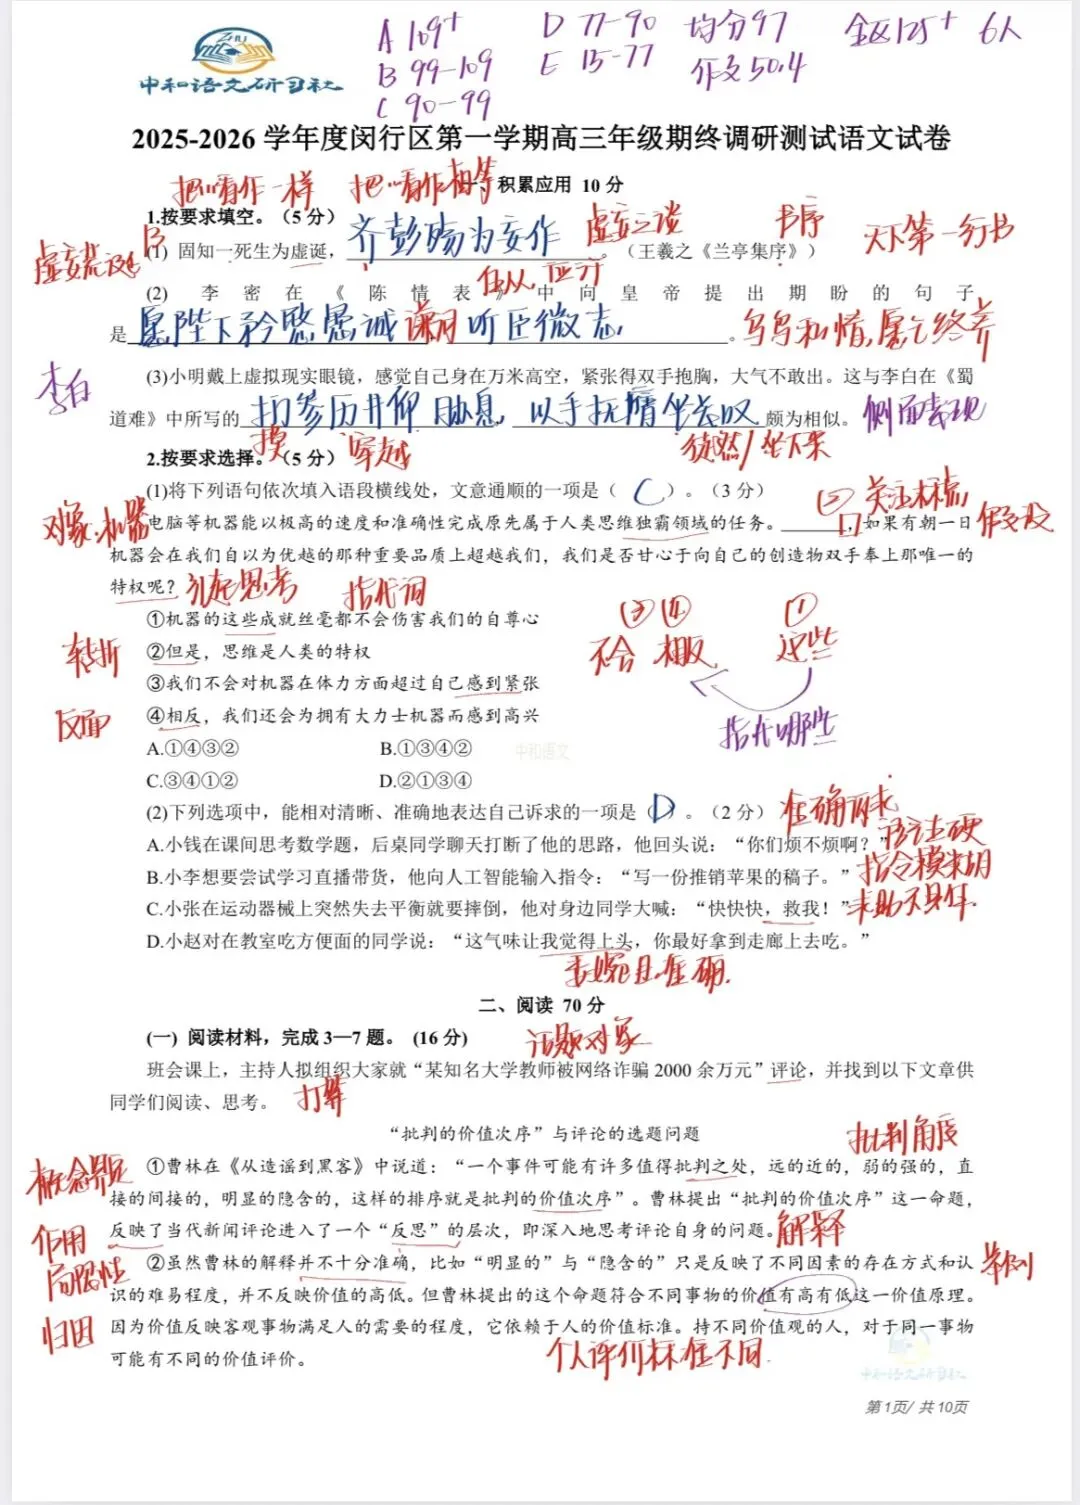 中和语文研习社
A 109+ D 77-90 均分97 全区125+ 6人
B 99-109 E 15-77 作文50.4
C 90-99
2025-2026 学年度闵行区第一学期高三年级期终调研测试语文试卷
把…看作一样 把…看作相等
一、积累应用 10 分
1.按要求填空。（5 分）
虚妄之谈 书序 天下第一行书
(1) 固知一死生为虚诞，齐彭殇为妄作。（王羲之《兰亭集序》）
虚妄荒诞的
(2) 李密在《陈情表》中向皇帝提出期盼的句子
是愿陛下矜愍愚诚 听臣微志。乌鸟私情，愿乞终养
李白
(3)小明戴上虚拟现实眼镜，感觉自己身在万米高空，紧张得双手抱胸，大气不敢出。这与李白在《蜀
道难》中所写的扪参历井仰胁息，以手抚膺坐长叹颇为相似。侧面表现
摸 穿越 徒然/坐下来
2.按要求选择。（5 分）
(1)将下列语句依次填入语段横线处，文意通顺的一项是（ C ）。（3 分）
② 关注标点
对象：机器
电脑等机器能以极高的速度和准确性完成原先属于人类思维独霸领域的任务。______，如果有朝一日
假设
机器会在我们自以为优越的那种重要品质上超越我们，我们是否甘心于向自己的创造物双手奉上那唯一的
特权呢？ 引起思考 指代词
①机器的这些成就丝毫都不会伤害我们的自尊心
③④ ①
转折 ②但是，思维是人类的特权
不会 相反 这些
③我们不会对机器在体力方面超过自己感到紧张
反面 ④相反，我们还会为拥有大力士机器而感到高兴
指代哪些
A.①④③② B.①③④②
中和语文
C.③④①② D.②①③④
(2)下列选项中，能相对清晰、准确地表达自己诉求的一项是（ D ）。（2 分）准确诉求
A.小钱在课间思考数学题，后桌同学聊天打断了他的思路，他回头说：“你们烦不烦啊？”
语气生硬
B.小李想要尝试学习直播带货，他向人工智能输入指令：“写一份推销苹果的稿子。”指令模糊
C.小张在运动器械上突然失去平衡就要摔倒，他对身边同学大喊：“快快快，救我！”求助不具体.
D.小赵对在教室吃方便面的同学说：“这气味让我觉得上头，你最好拿到走廊上去吃。”
委婉且准确.
二、阅读 70 分
(一) 阅读材料，完成 3—7 题。 (16 分)
话题对象
班会课上，主持人拟组织大家就“某知名大学教师被网络诈骗 2000 余万元”评论，并找到以下文章供
同学们阅读、思考。 打算
“批判的价值次序”与评论的选题问题
批判角度
概念界定
①曹林在《从造谣到黑客》中说道：“一个事件可能有许多值得批判之处，远的近的，弱的强的，直
接的间接的，明显的隐含的，这样的排序就是批判的价值次序”。曹林提出“批判的价值次序”这一命题，
作用
反映了当代新闻评论进入了一个“反思”的层次，即深入地思考评论自身的问题。解释
局限性
②虽然曹林的解释并不十分准确，比如“明显的”与“隐含的”只是反映了不同因素的存在方式和认
举例
识的难易程度，并不反映价值的高低。但曹林提出的这个命题符合不同事物的价值有高有低这一价值原理。
归因
因为价值反映客观事物满足人的需要的程度，它依赖于人的价值标准。持不同价值观的人，对于同一事物
可能有不同的价值评价。
个人评价标准不同.
中和语文研习社
第 1页/ 共 10页